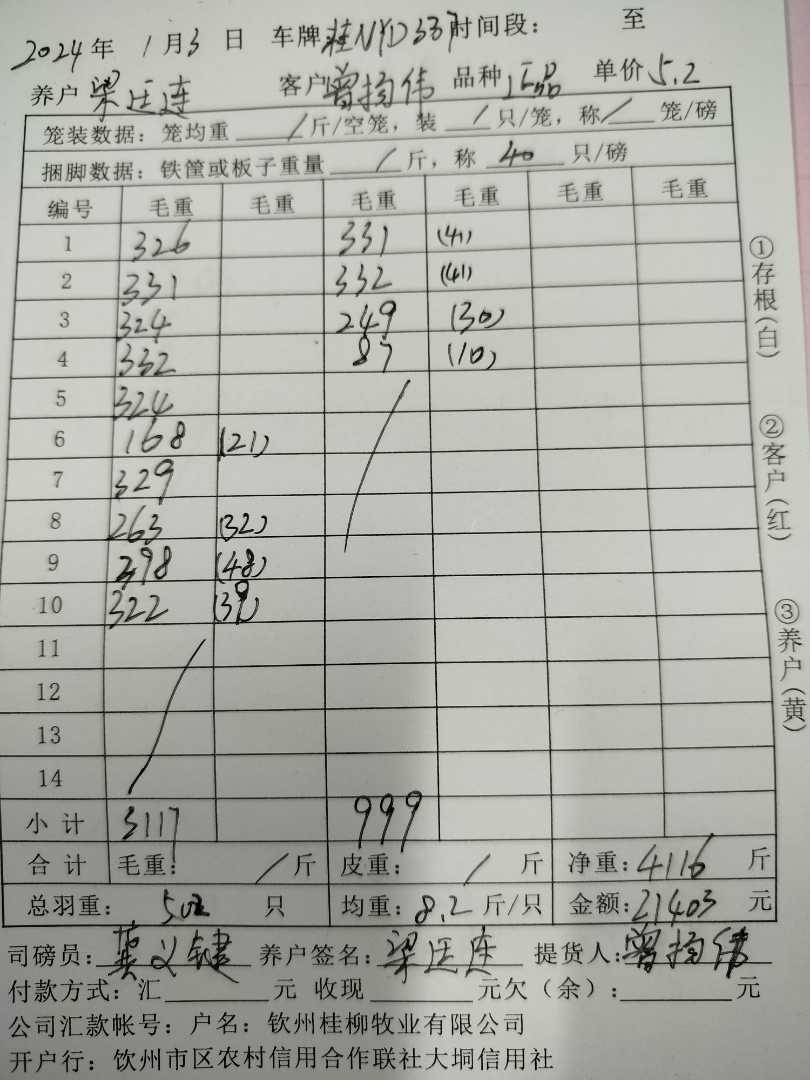 2024年 1月3日 车牌桂NYD337时间段： 至
养户梁廷连 客户曾扬伟 品种正品 单价5.2
笼装数据：笼均重 / 斤/空笼，装 / 只/笼，称 / 笼/磅
捆脚数据：铁筐或板子重量 / 斤，称 40 只/磅
编号 毛重 毛重 毛重 毛重 毛重 毛重
1 326 331 (41)
2 331 332 (41)
3 324 249 (30)
4 332 87 (10)
5 324
6 168 (21)
7 329
8 263 (32)
9 398 (48)
10 322 (39)
11
12
13
14
小计 3117 999
合计 毛重： / 斤 皮重： / 斤 净重：4116 斤
总羽重： 502 只 均重：8.2斤/只 金额：21403元
司磅员：莫义键 养户签名：梁廷连 提货人：曾扬伟
付款方式：汇 元 收现 元欠（余）： 元
公司汇款帐号：户名：钦州桂柳牧业有限公司
开户行：钦州市区农村信用合作联社大垌信用社
①存根(白)
②客户(红)
③养户(黄)